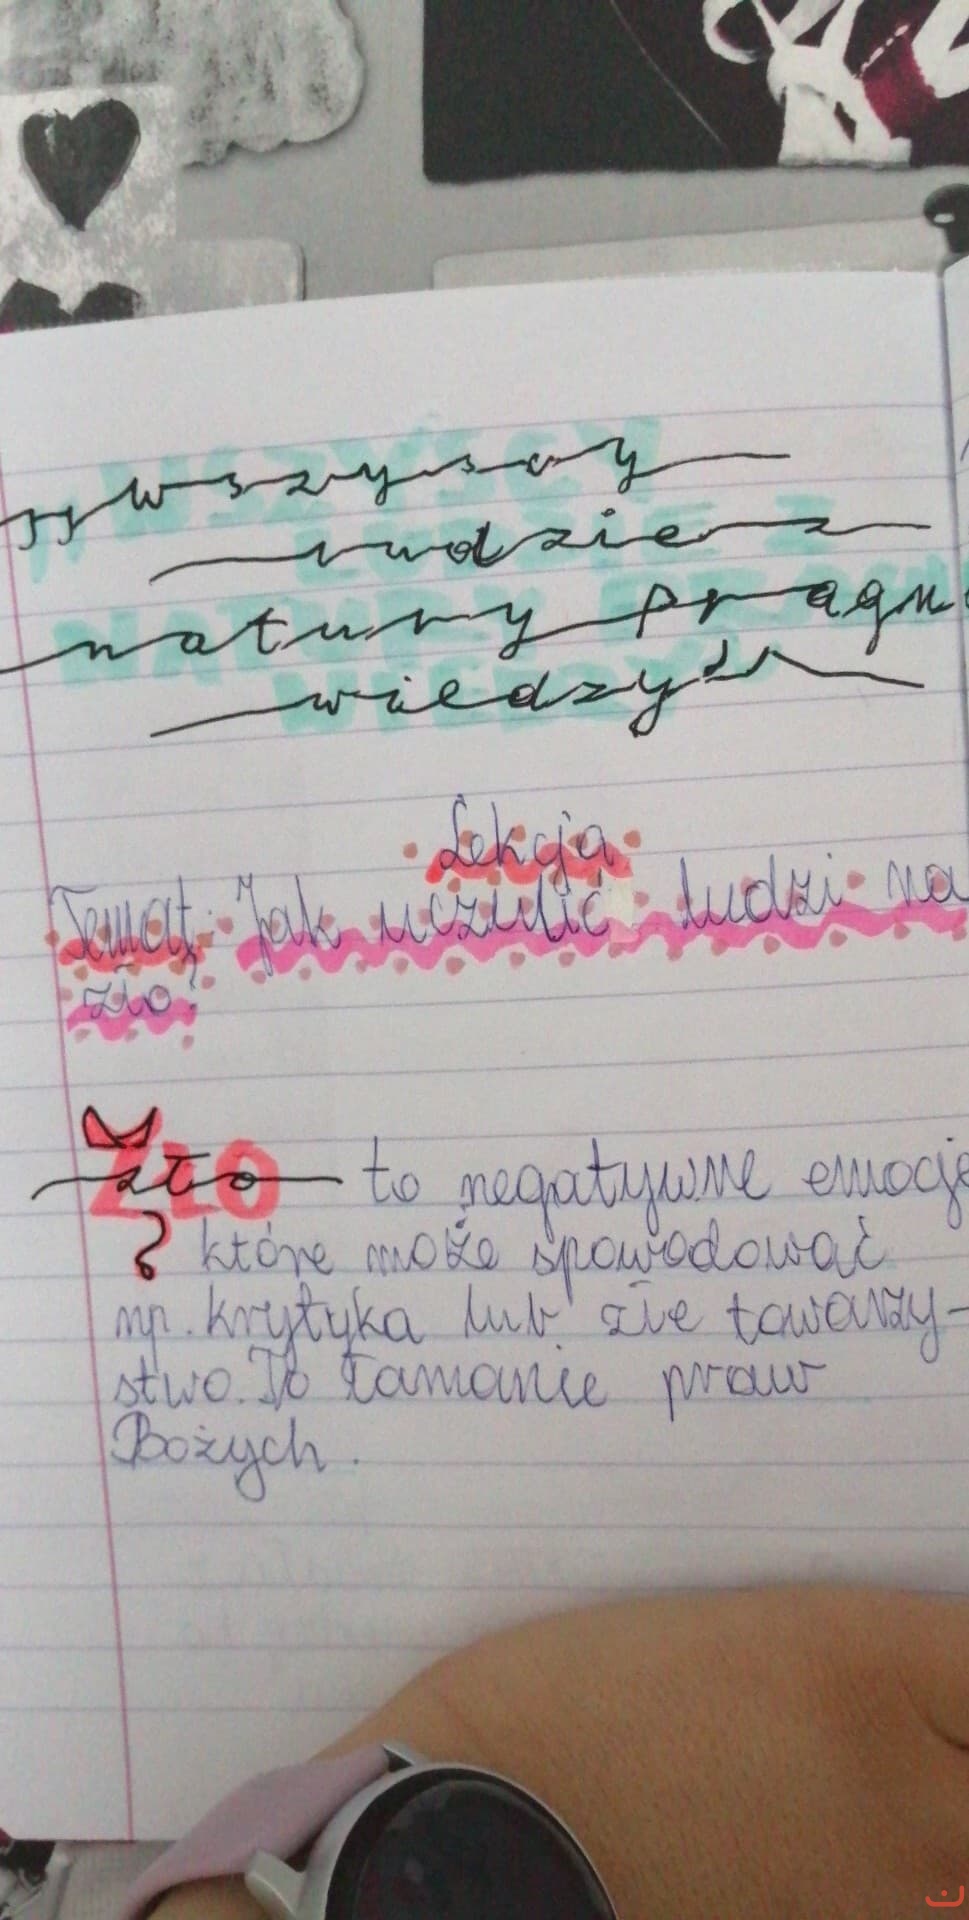 „Wszyscy
ludzie z
natury pragn
wiedzy"
Lekcja
Temat: Jak uczulić ludzi na
zło?
Zło to negatywne emocje
które może spowodować
np. krytyka lub złe towarzy-
stwo. To łamanie praw
Bożych.